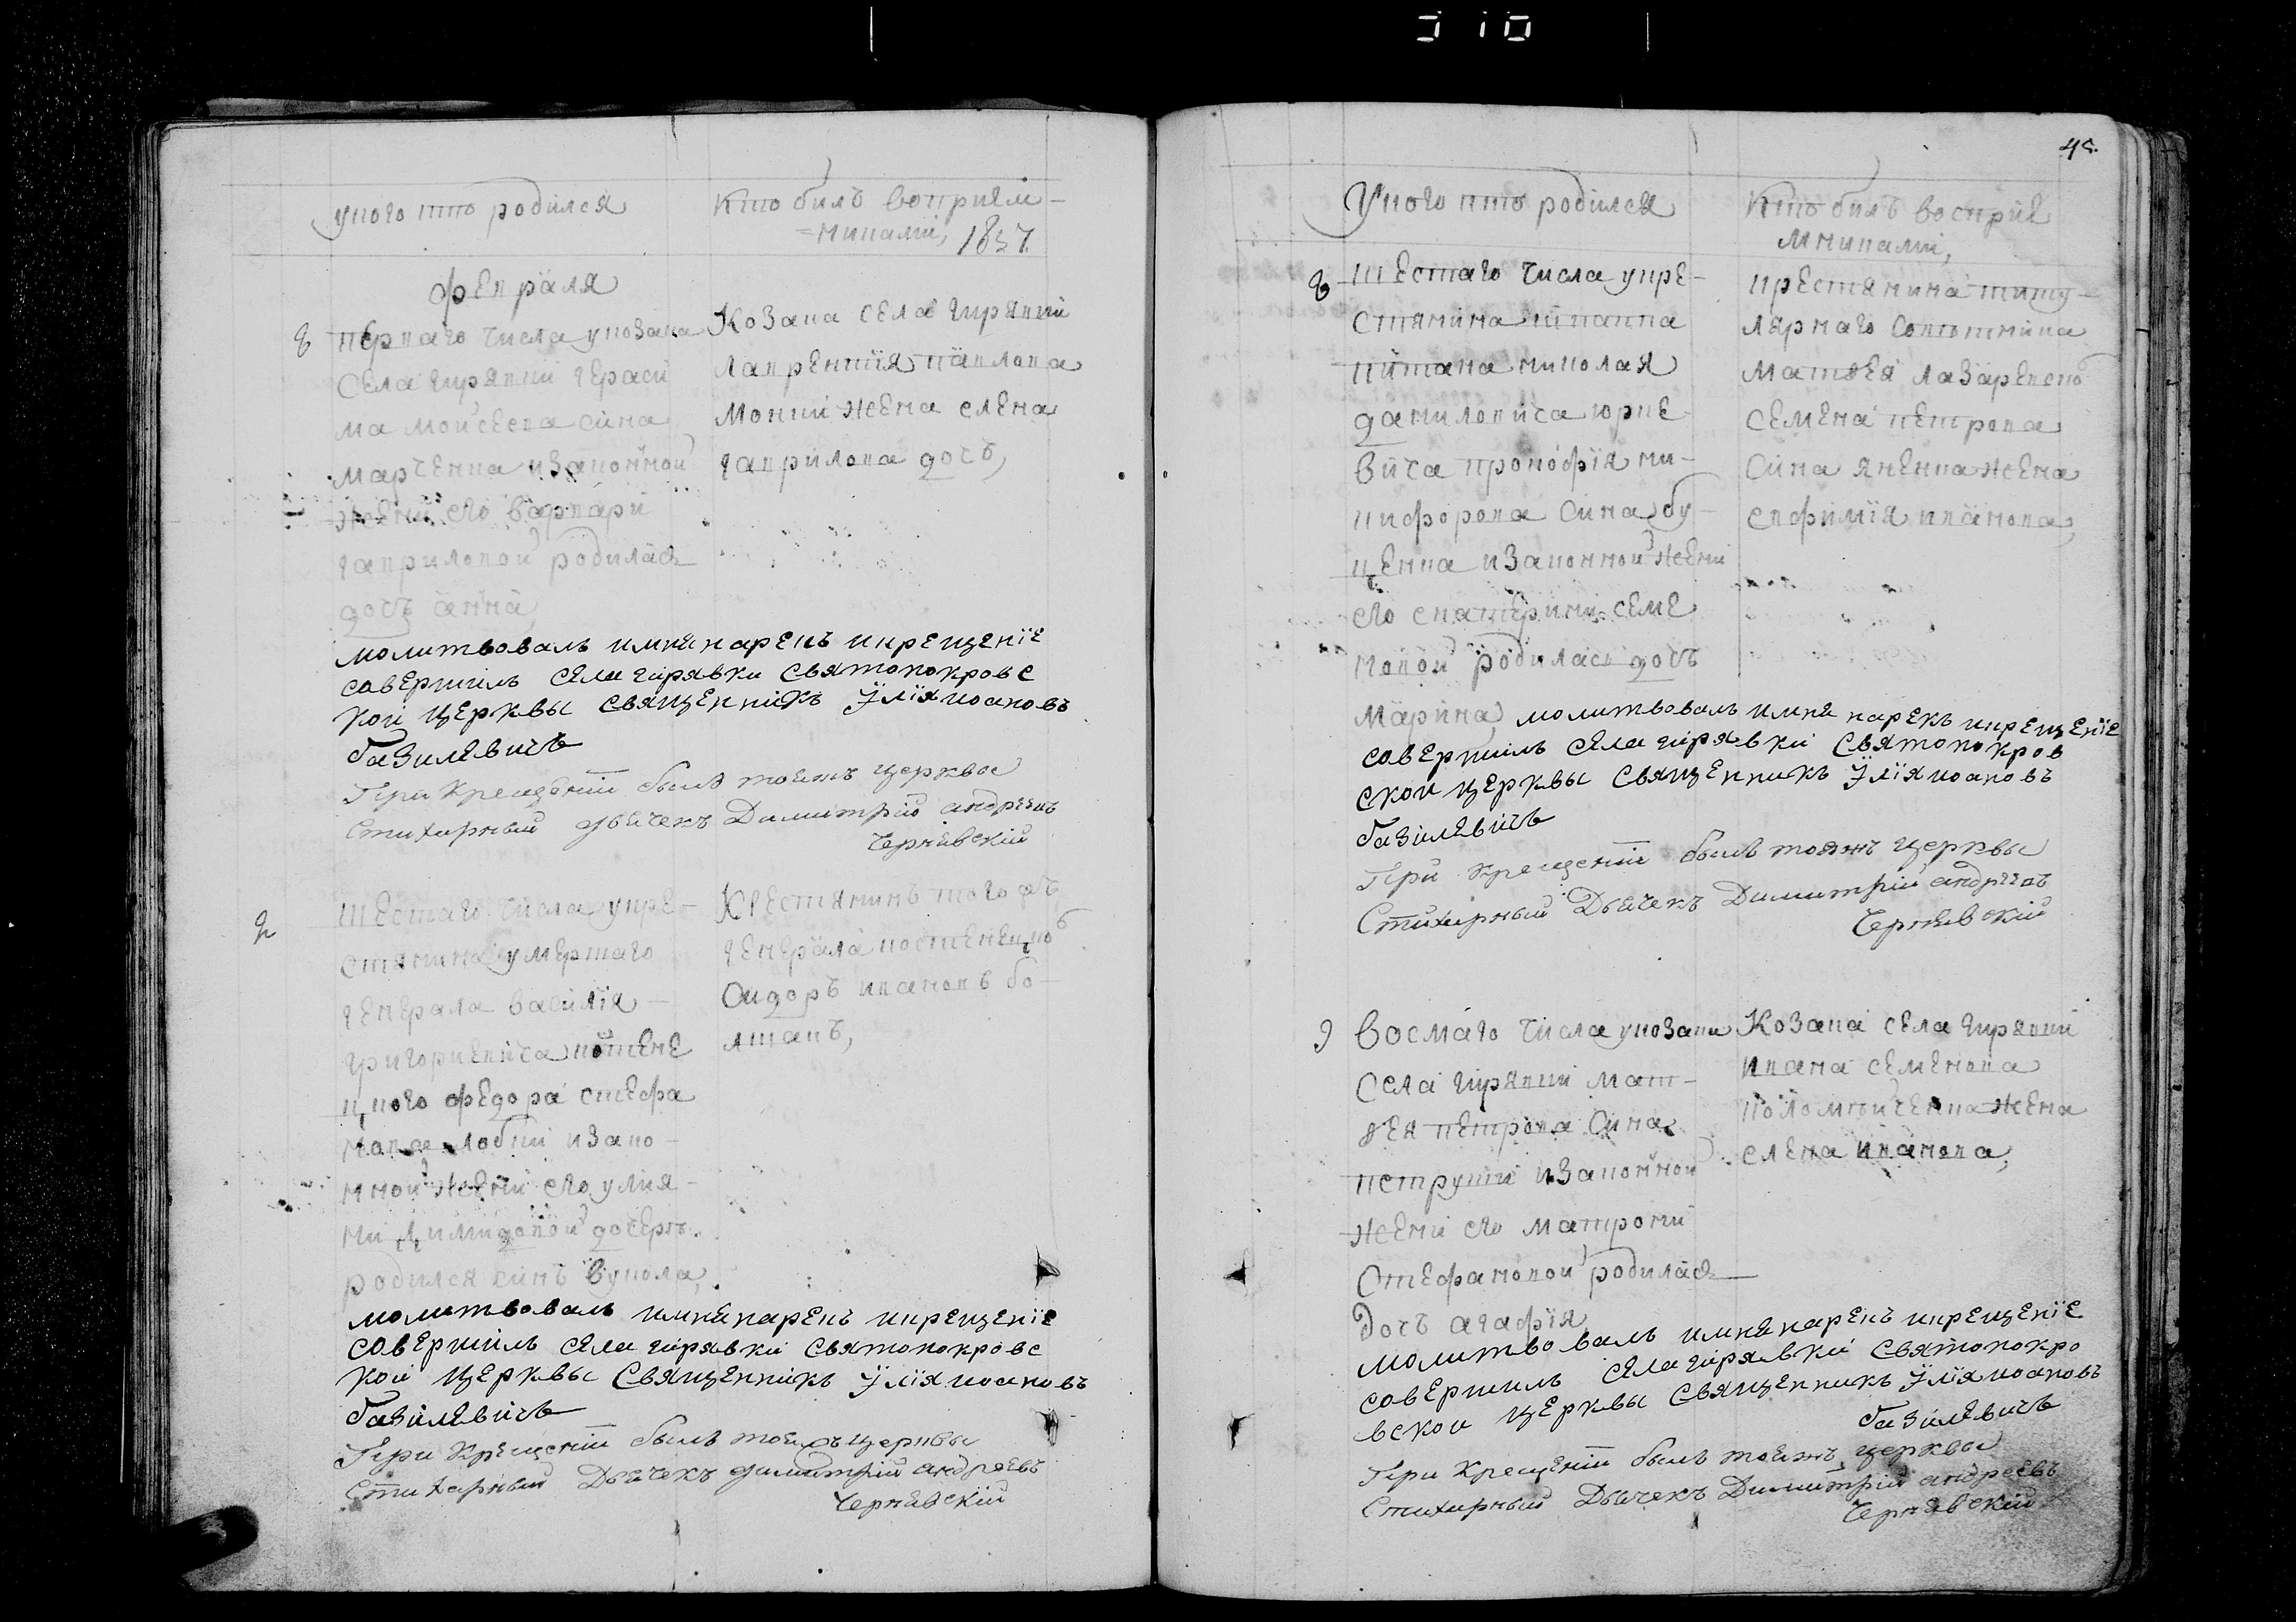 310
у кого што родился
Кто билъ восприем-
=никамы, 1837
февраля
перваго числа у козака
села гирявки гераси
ма моисеева сина
марченка изаконной
жени его варвари
гавриловой родилась
дочъ анна,
Козака села гирявки
лаврентия павлова
жена елена
гаврилова дочъ,
молитвовалъ имя нарекъ и крещенїе
совершилъ села гирявки святопокровс
кой церквы священникъ Їлїя иоановъ
базилевичъ
При Крещеніи былъ тоежъ церквы
Стихарный дьячекъ Димитрій андреевъ
Чернявскій
шестаго числа у кре-
стянина умершаго
генерала василїя
григориевича костене
цкого федора стефа
нова изако-
нной жени его улия-
ни дочерѣ
родился синъ вукола,
Крестянинъ того жъ
генерала костенецко
Сидоръ ивановъ бо-
лшакъ,
молитвовалъ имя нарекъ и крещенїе
совершилъ села гирявки святопокровс
кой церквы Священникъ Їлїя иоановъ
базилевичъ
При Крещеніи былъ тоежъ церквы
Стихарный Дьячекъ димитрій андреевъ
Чернявскій
У кого што родился
Кто билъ восприе
мниками,
шестаго числа у кре-
стянина штапна
питана николая
даниловича юрке
вича прокофїя ни-
кифорова сина бу
ценка изаконной жени
его екатерини семе
новой родилась дочъ
Марина, молитвовалъ имя нарекъ и крещенїе
крестянина титу-
лярнаго советника
матвея лазаревско
семена петрова
сина яненка жена
евфимїя иванова,
совершилъ села гирявки Святопокров
ской церквы Священникъ Їлїя иоановъ
базилевичъ
При Крещеніи былъ тоежъ церквы
Стихарный Дьячекъ Димитрій андреевъ
Чернявскій
Восмаго числа у козака
Села гирявки мат-
вея петрова Сина
петруши изаконной
жени его матрони
Стефановой родилась
Дочъ агафїя,
Козака села гирявки
ивана семенова
жена
елена иванова,
молитвовалъ имя нарекъ и крещенїе
совершилъ села гирявки святопокро
вской церквы Священникъ Їлїя иоановъ
базилевичъ
При Крещеніи былъ тоежъ церквы
Стихарный Дьячекъ Димитрій андреевъ
Чернявскій